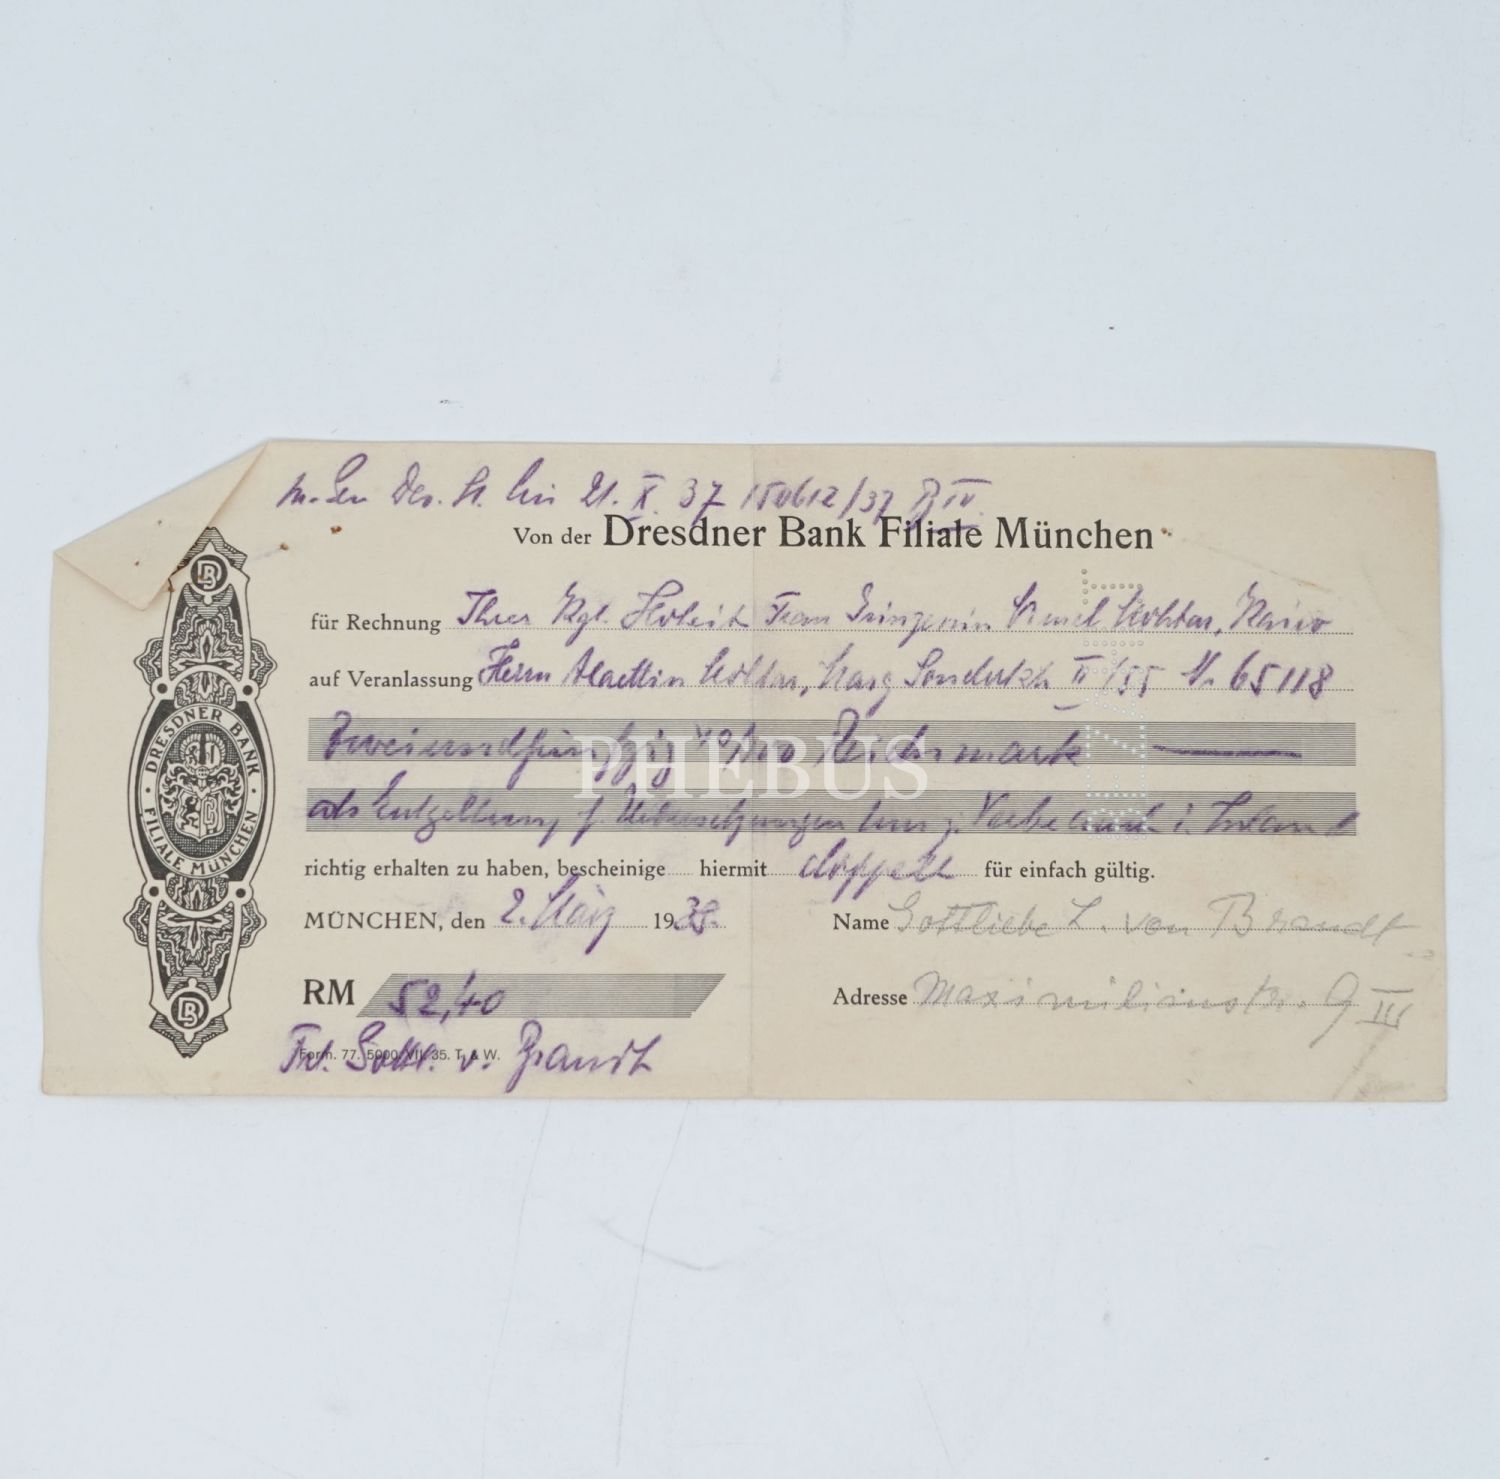 21. X. 37 150612/37 B IV.
Von der Dresdner Bank Filiale München
für Rechnung Ihrer Kgl. Hoheit Frau Prinzessin Kairo
auf Veranlassung Herrn II/55 65118
Zweiundfünfzig 40/100 Reichsmark
als Entgeltung f. Uebersetzungen
richtig erhalten zu haben, bescheinige hiermit doppelt für einfach gültig.
MÜNCHEN, den 2. März 1938.
Name Gottliebe L. von Brandt
RM 52,40
Adresse Maximilianstr. 9 III
Form. 77. 5000. VII. 35. T. & W.
Frl. Gottl. v. Brandt
DB
DRESDNER BANK
FILIALE MÜNCHEN
DB
PHEBUS